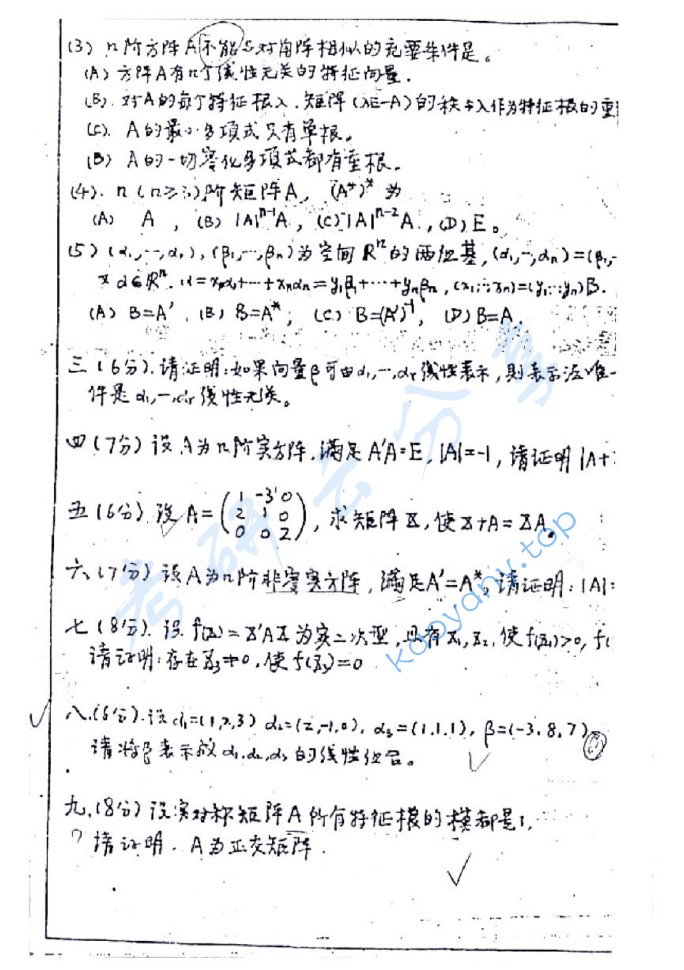 (3) n阶方阵A不能与对角阵相似的充要条件是。
(A) 方阵A有n个线性无关的特征向量.
(B). 对A的每个特征根λ. 矩阵(λE-A)的秩与λ作为特征根的重
(C). A的最小多项式只有单根.
(D) A的一切零化多项式都有重根.
(4). n(n≥)阶矩阵A, (A*)* 为
(A) A , (B) |A|ⁿ⁻¹A , (C) |A|ⁿ⁻²A. , (D) E。
(5) (α₁,…,αₙ), (β₁,…,βₙ)为空间Rⁿ的两组基, (α₁,…,αₙ)=(β₁,
α∈Rⁿ. α=x₁α₁+…+xₙαₙ=y₁β₁+…+yₙβₙ, (x₁…xₙ)=(y₁…yₙ)B.
(A) B=A′, (B) B=A*; (C) B=(A′)⁻¹, (D) B=A.
三(6分).请证明:如果向量β可由α₁,…,αr线性表示,则表示法唯一
件是α₁,…,αr线性无关。
四(7分) 设A为n阶实方阵.满足A′A=E.|A|=-1,请证明|A+
五(6分) 设A=(1 -3 0
2 1 0
0 0 2), 求矩阵X,使X+A=XA。
六(7分) 设A为n阶非零实方阵,满足A′=A*。请证明:|A|
七(8分).设f(X)=X′AX为实二次型,且有X₁,X₂,使f(X₁)>0, f(
请证明:存在X₃≠0.使f(X₃)=0
八.(6分).设α₁=(1,2,3) α₂=(2,-1,0), α₃=(1.1.1), β=(-3.8,7)
请将β表示成α₁.α₂,α₃的线性组合。
九.(8分)设实对称矩阵A所有特征根的模都是1,
? 请证明. A为正交矩阵.
考研云分享
kaoyany.top